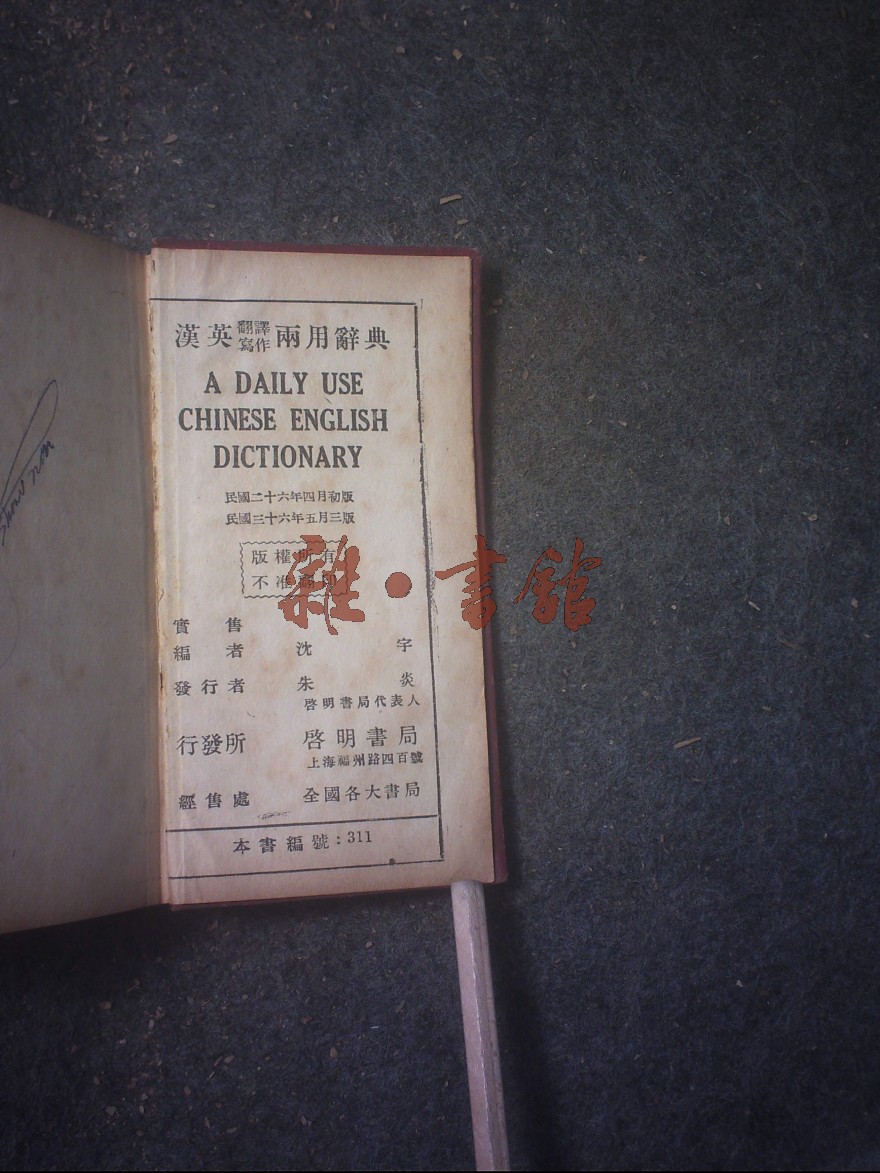 漢英翻譯寫作兩用辭典
A DAILY USE
CHINESE ENGLISH
DICTIONARY
民國二十六年四月初版
民國三十六年五月三版
版權所有
不准翻印
實售
編者 沈宇
發行者 朱炎
啓明書局代表人
行發所 啓明書局
上海福州路四百號
經售處 全國各大書局
本書編號:311
雜·書館